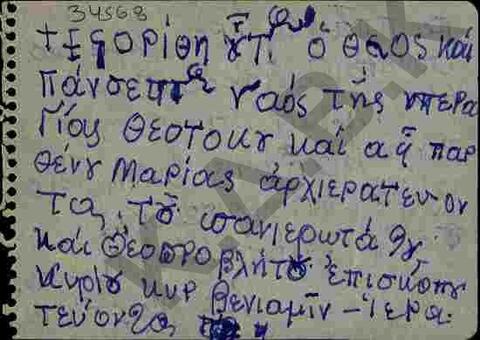 34568
+ Ἐξορίθη οὗτ. ὁ θεῖος καὶ
Πάνσεπτ ναός τῆς ὑπερα
Γίας Θεοτόκου καί ἀ παρ
θένου Μαρίας ἀρχιερατευον
τος, τοῦ πανιερωτά
καί Θεοπροβλήτου ἐπισκόπου
Κυρίου κυρ Βενιαμῖν - ἱερα
τεύοντος